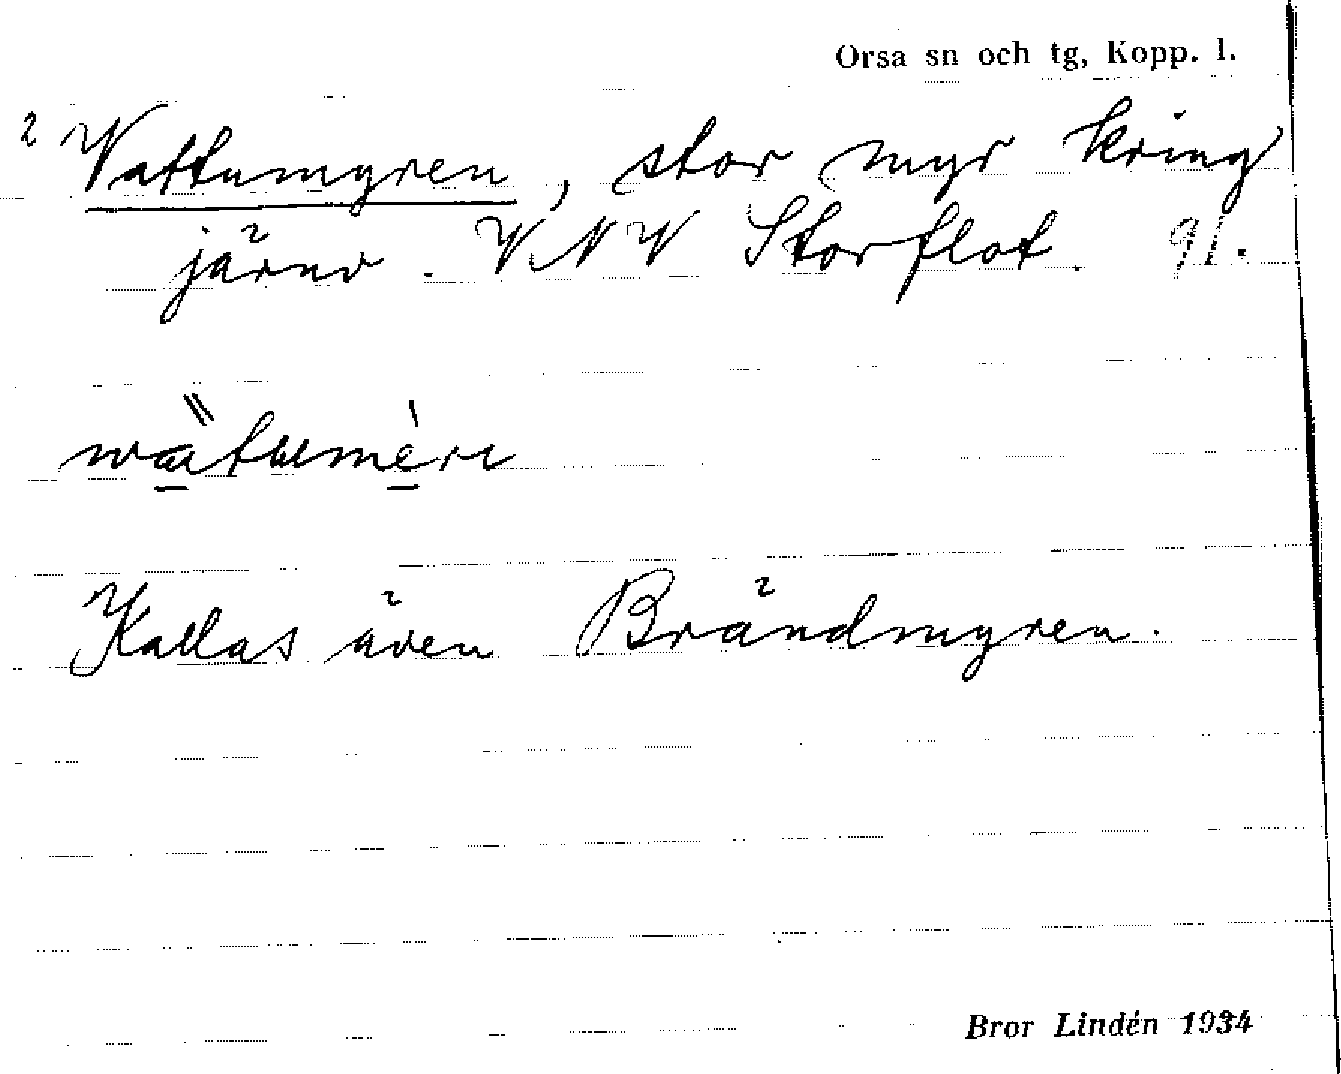 Orsa sn och tg, Kopp. l.
2 Vattumyren, stor myr kring
järnv. VNV Storflot. 91.
wätumèrı
Kallas även Brändmyren.
Bror Lindén 1934